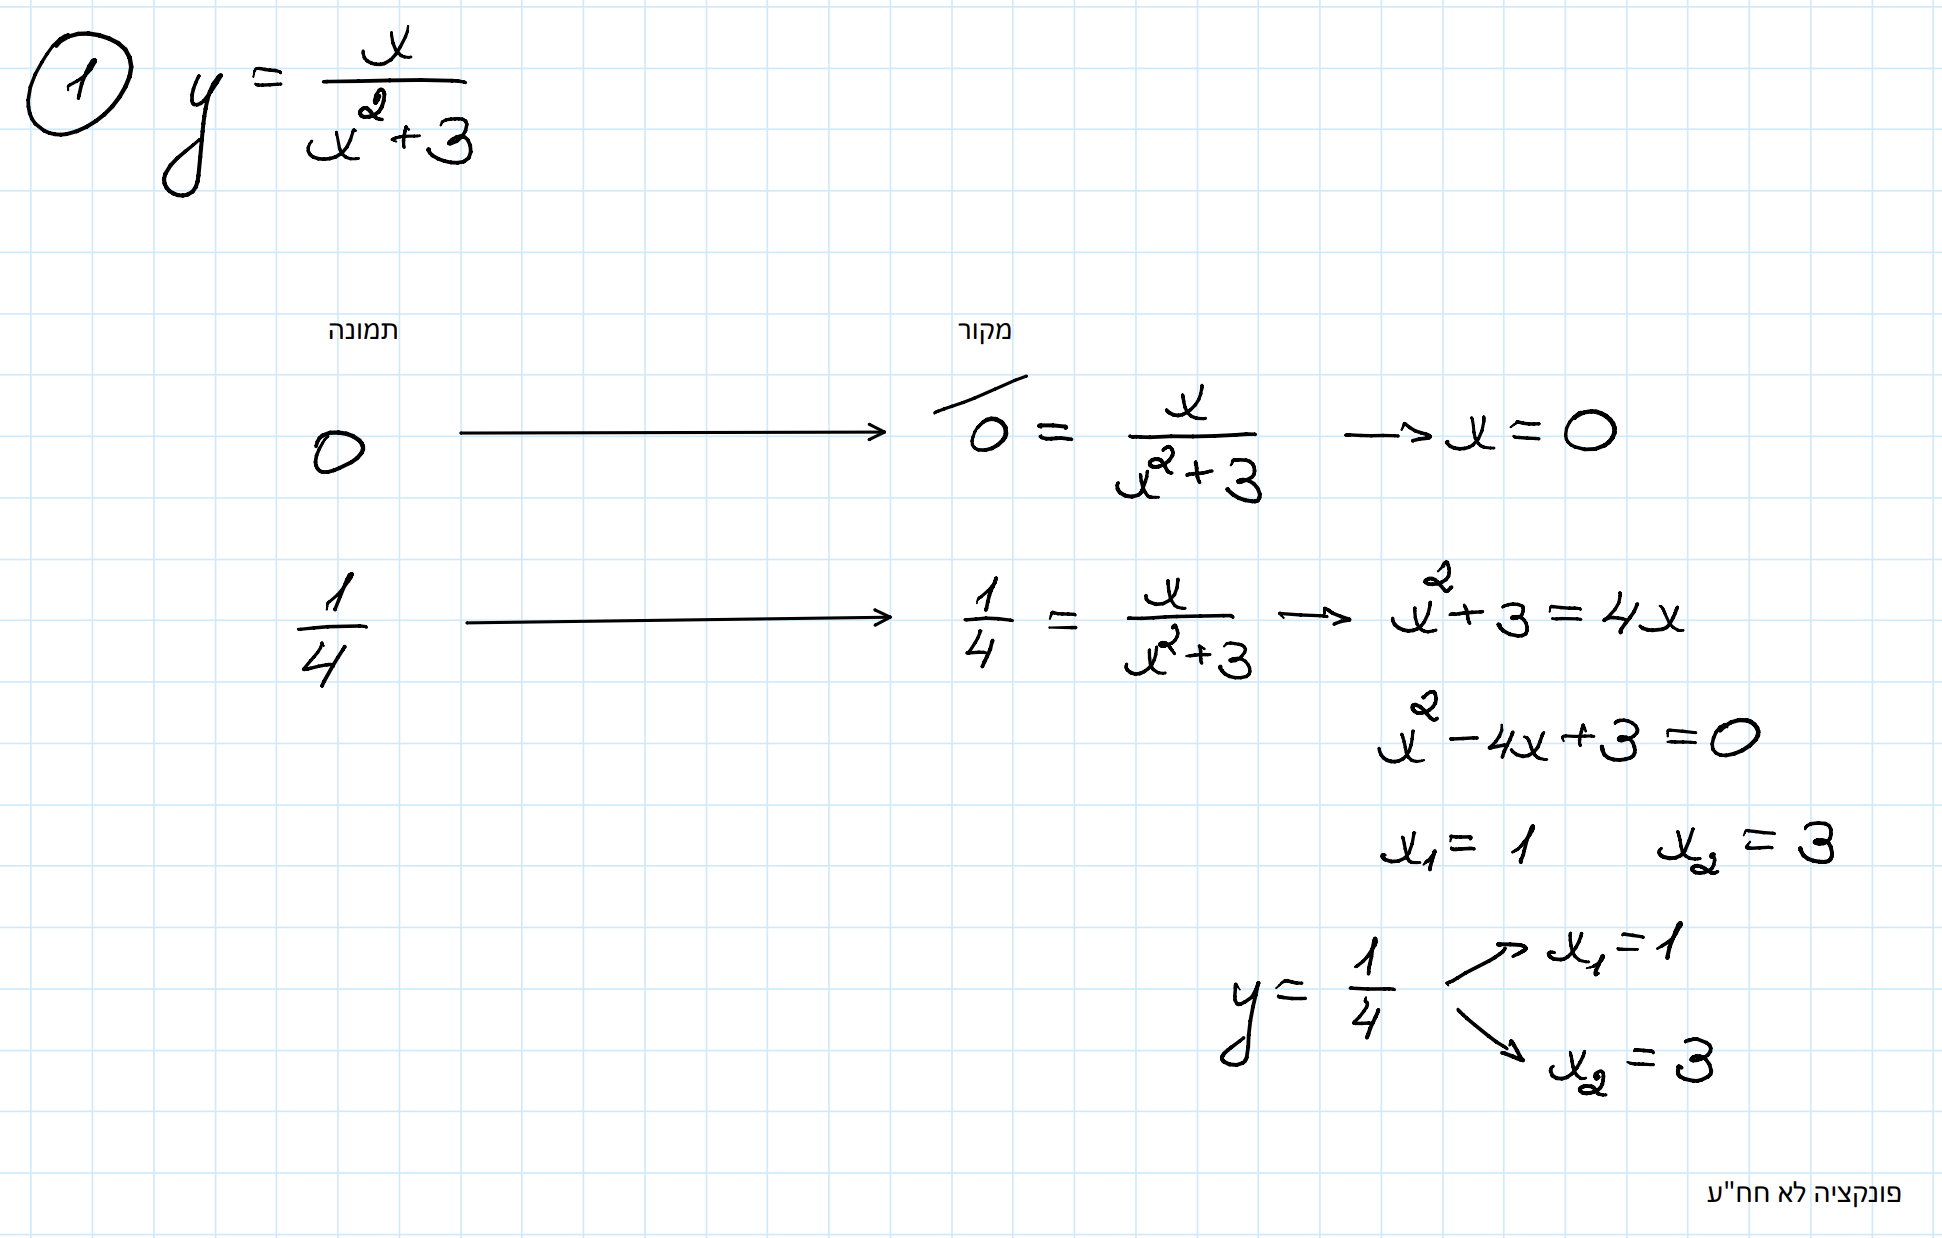 ① y = x / (x² + 3)
תמונה מקור
0 → 0 = x / (x² + 3) → x = 0
1/4 → 1/4 = x / (x² + 3) → x² + 3 = 4x
x² - 4x + 3 = 0
x₁ = 1 x₂ = 3
y = 1/4 ↗ x₁ = 1
↘ x₂ = 3
פונקציה לא חח"ע